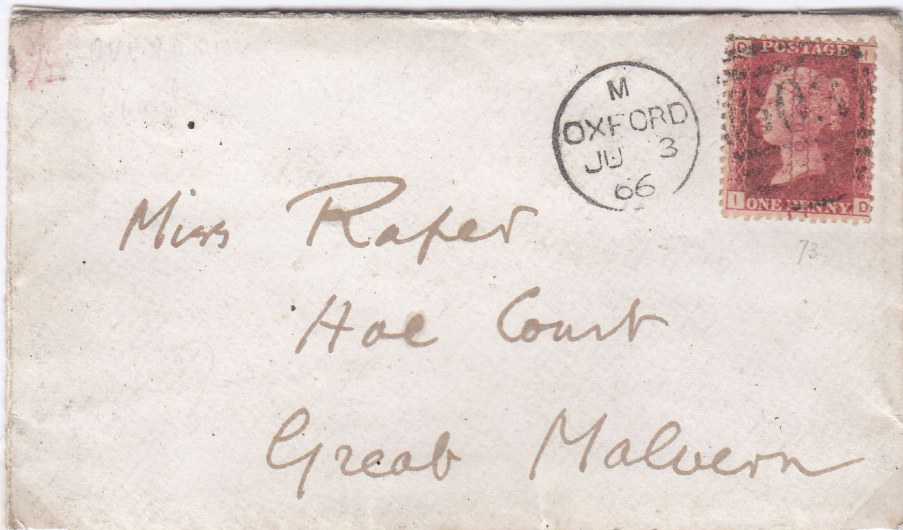 M
OXFORD
JU 3
66
POSTAGE
D I
I ONE PENNY D
73
Miss Raper
Hoe Court
Great Malvern